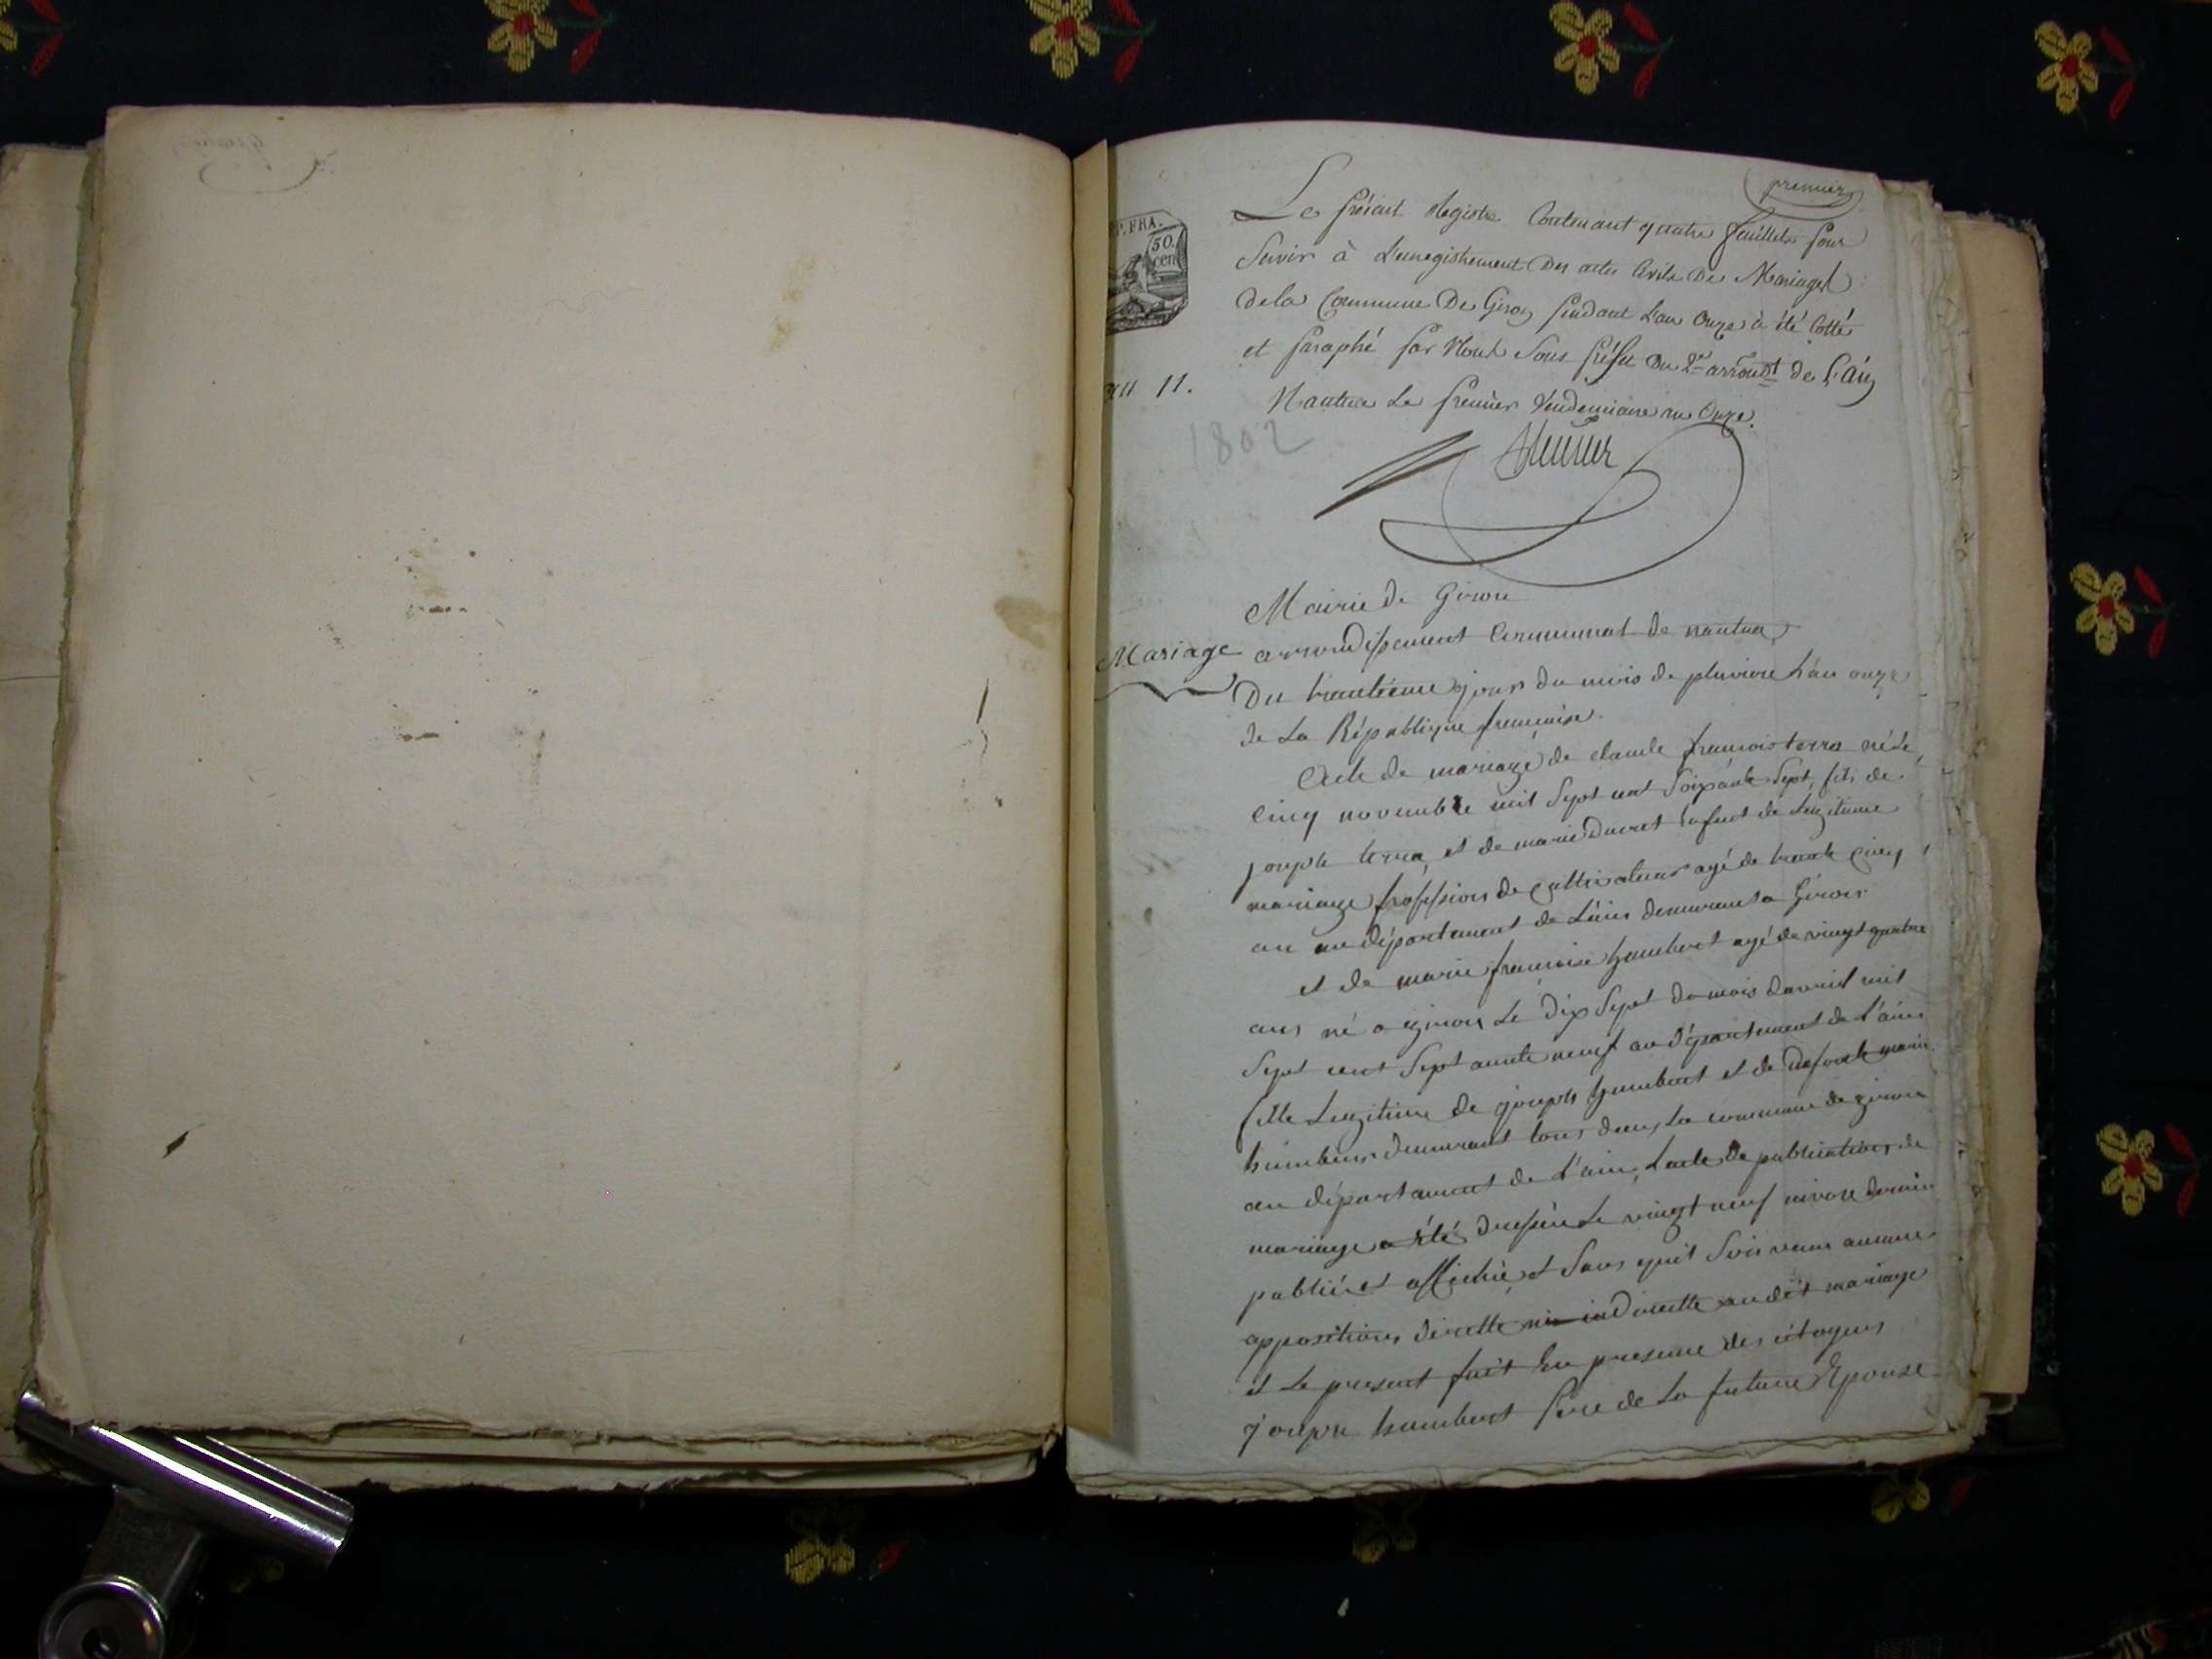 premier
P. FRA.
50.
cen
Le présent Registre Contenant quatre feuillets pour
Servir à L'enregistrement Des actes Civils De Mariages
de la Commune De Giron pendant L'an Onze à été Cotté
et paraphé par Nous Sous préfet du 2e arrondt de L'ain
an 11.
Nantua Le premier Vendemiaire an Onze.
1802
Mairie de Giron
Mariage
arrondissement Communal de nantua
Du trantieme jour du mois de pluviore L'an onze
de La République française.
Acte de mariage de claude francois terra né le
cinq novembre mil Sept cent Soixante Sept, fils de
joseph terra, et de marie Ducret de Leugitime
mariage profession de cultivateur agé de trante cinq
an au département de L'ain demeurant a Giron
et de marie francoise humbert agé de vingt quatre
ans né a giron Le dix Sept du mois davril mil
Sept cent Sept ante neuf au département de L'ain
fille Leugitime de joseph humbert et de defonte marie
humbert demeurant tous dans La commune de giron
au département de L'ain, Lacte de publication de
mariage a été dressée Le vingt neuf nivore dernier
publié et affichée, et Sans quil Soit venu aucune
apposition directte ni indirectte au dit mariage
et Le present fait En presence des citoyens
joseph humbert pere de La future Epouse